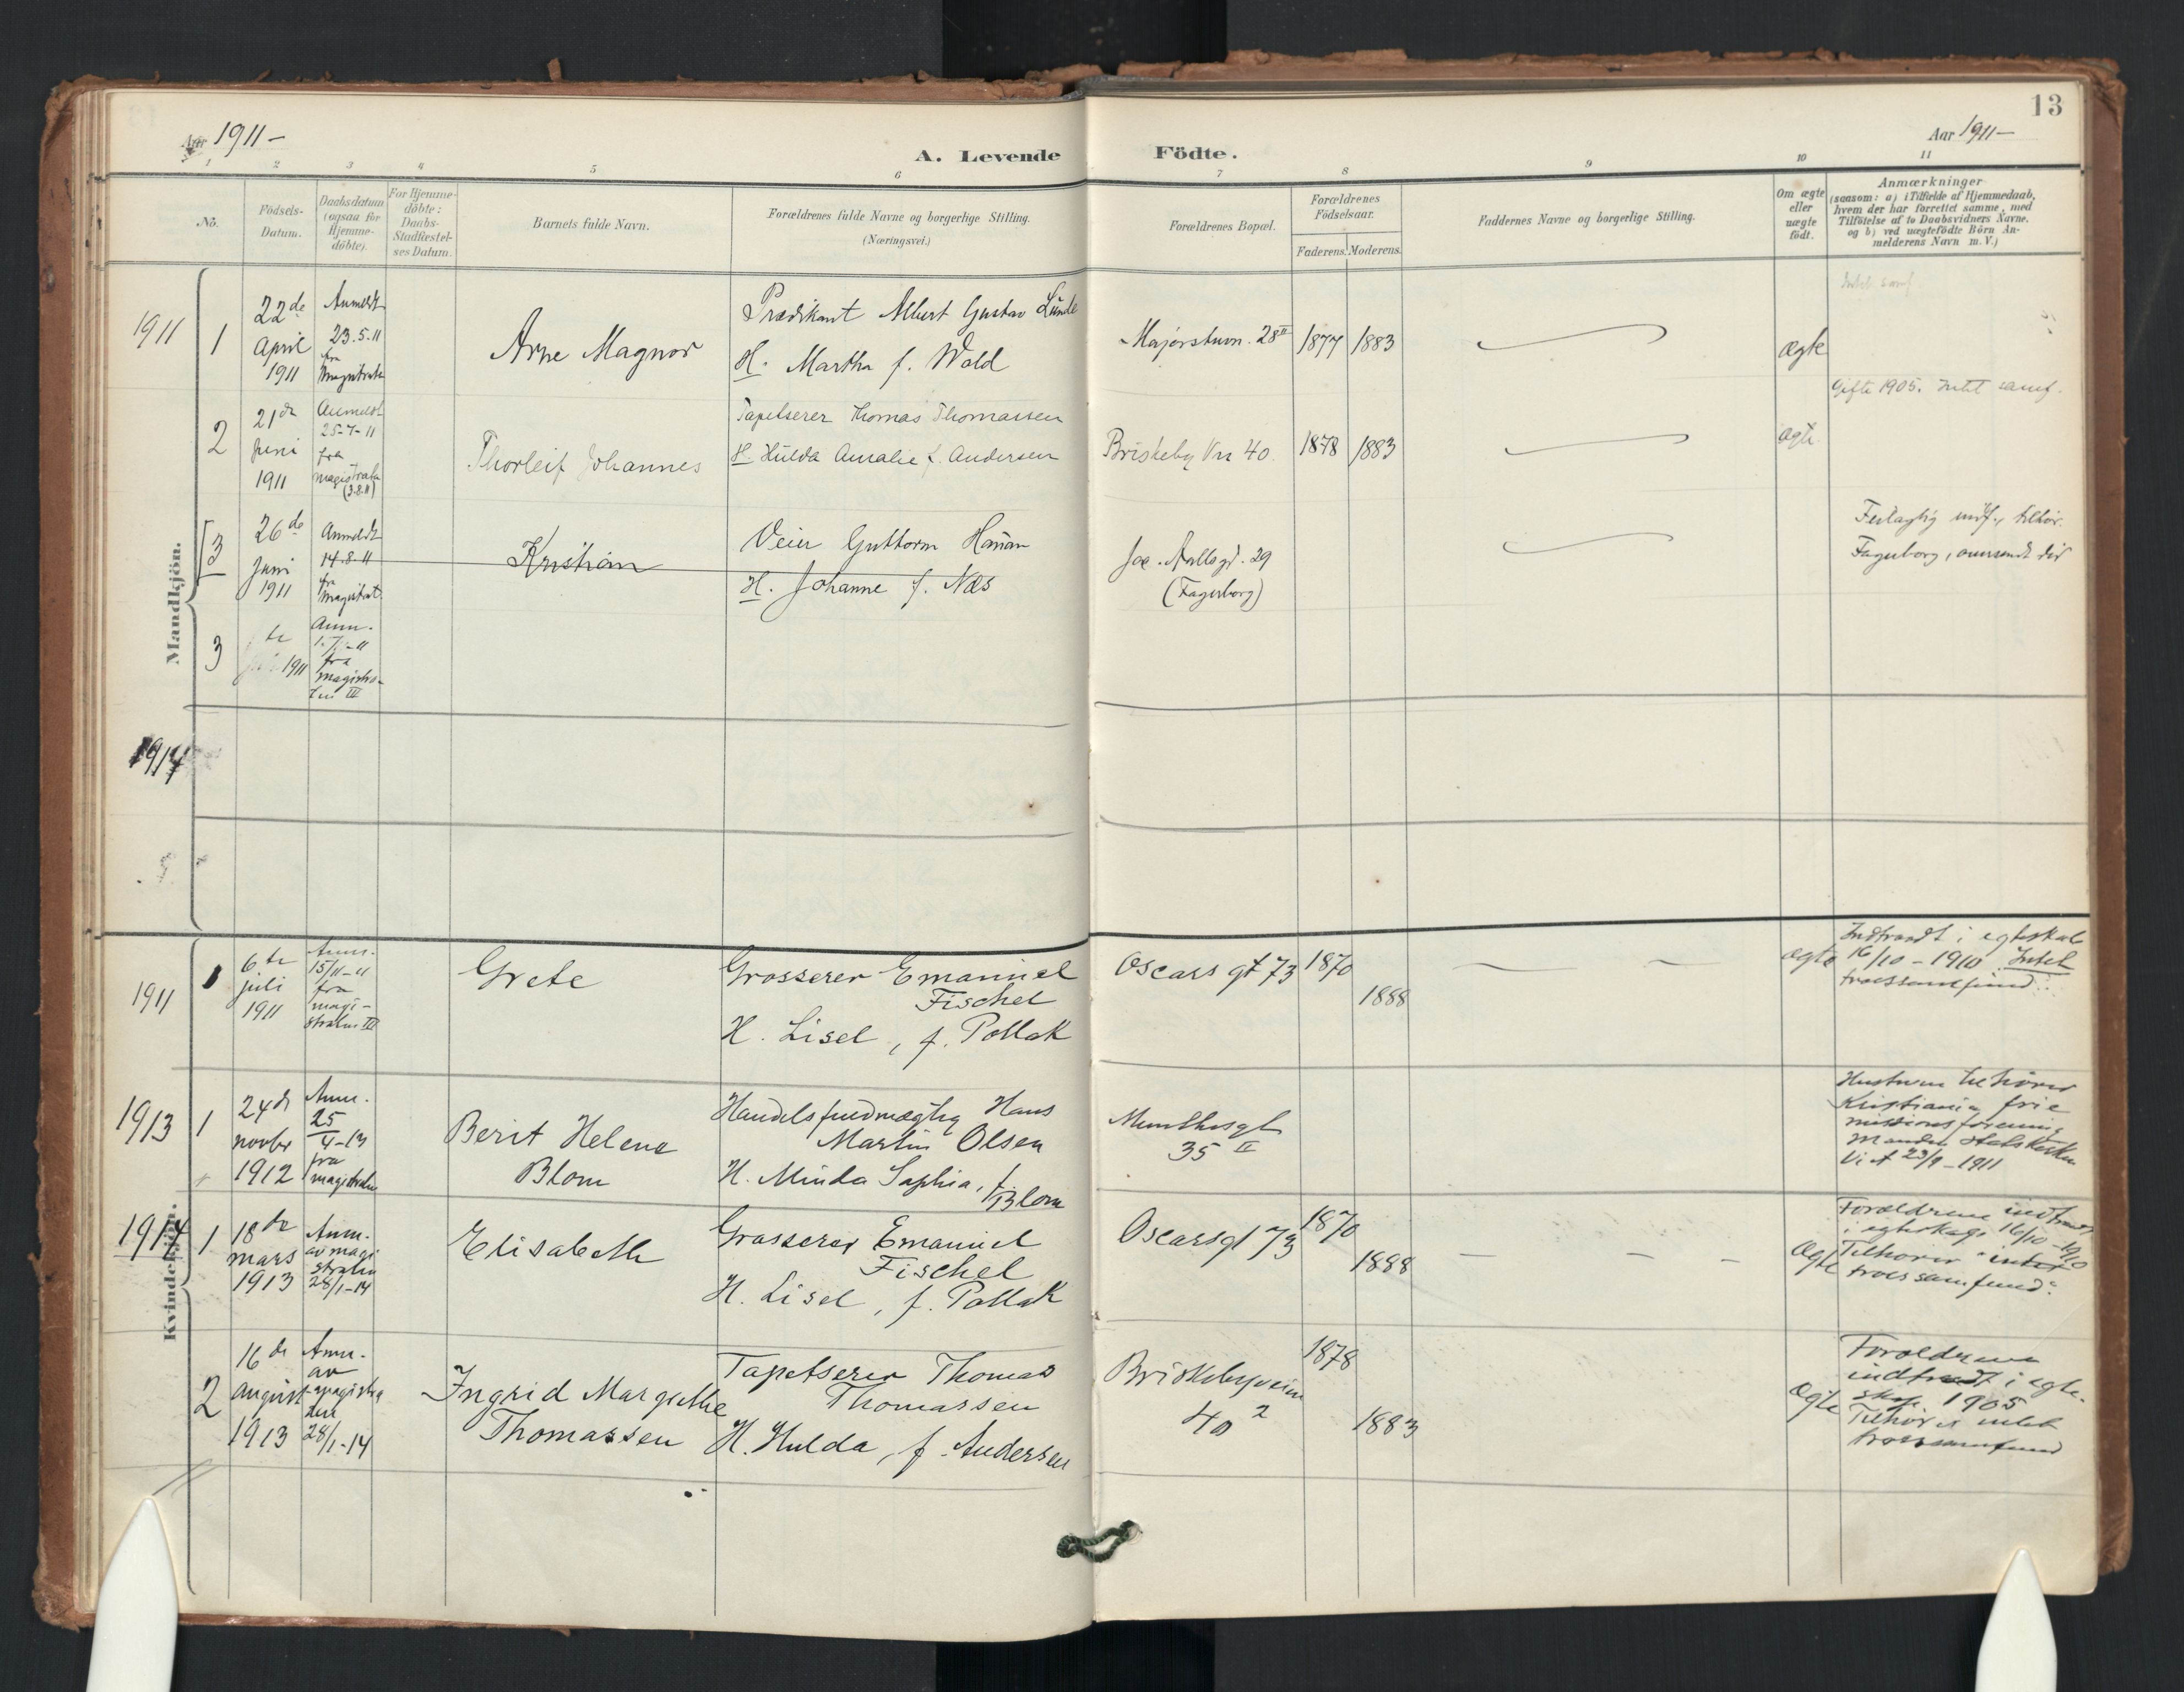 13
Aar 1911-
A. Levende Födte.
Aar 1911-
1 2 3 4 5 6 7 8 9 10 11
No.
Födsels-
Datum.
Daabsdatum
(ogsaa for
Hjemme-
döbte).
For Hjemme-
döbte:
Daabs-
Stadfæstel-
ses Datum.
Barnets fulde Navn.
Forældrenes fulde Navne og borgerlige Stilling.
(Næringsvei.)
Forældrenes Bopæl.
Forældrenes
Födselsaar.
Faderens. Moderens.
Faddernes Navne og borgerlige Stilling.
Om ægte
eller
uægte
födt.
Anmærkninger
(saasom: a) i Tilfælde af Hjemmedaab,
hvem der har forrettet samme, med
Tilföielse af to Daabsvidners Navne.
og b) ved uægtefödte Börn An-
melderens Navn m. V.)
Mandkjön.
1911
1
22de
April
1911
Anmeldt
23.5.11
fra
Magistraten
Arne Magnor
Prædikant Albert Gustav Lunde
H. Martha f. Wold
Majorstuvn. 28 II
1877
1883
ægte
Intet samf.
2
21de
Juni
1911
Anmeldt
25-7-11
fra
magistraten
(3.8.11)
Thorleif Johannes
Tapetserer Thomas Thomassen
H Hulda Amalie f. Andersen
Briskeby Vn 40
1878
1883
ægte.
Gifte 1905. Intet samf.
3
26de
Juni
1911
Anmeldt
14-8-11
fra
Magistrat.
Kristian
Veier Guttorm
H. Johanne f. Næs
Joc. Aallsgd. 29
(Fagerborg)
Feilagtig indf., tilhør.
Fagerborg, oversendt did
3
te
1911
Anm.
fra
magistra-
ten III
1914
Kvindekjön.
1911
1
6te
juli
1911
Anm.
15/11-11
fra
magi-
straten III
Grete
Grosserer Emanuel
Fischel
H. Lisel, f. Pollak
Oscars gt 73
1870
1888
ægte
Indtraadt i egteskab
16/10-1910 Intet
troessamfund.
1913
1
24de
novbr
1912
Anm.
25
4-13
fra
magistraten
Berit Helene
Blom
Handelsfuldmægtig Hans
Martin Olsen
H. Minda Sophia, f.
Blom
Munthesgt
35 II
Hustruen tilhører
Kristiania frie
missionsforening
Manden statskirken
Viet 23/9-1911
1914
1
18de
mars
1913
Anm.
av magi
straten
28/1-14
Elisabeth
Grosserer Emanuel
Fischel
H. Lisel, f. Pollak
Oscarsgt 73
1870
1888
Ægte
Forældrene indtraadt
i egteskap 16/10-1910
Tilhører "intet
troessamfund".
2
16de
august
1913
Anm.
av
magistra
ten
28/1-14
Ingrid Margrethe
Thomassen
Tapetserer Thomas
Thomassen
H. Hulda, f. Andersen
Briskebyveien
40 2
1878
1883
Ægte
Forældrene
indtraadt i egte-
skap 1905
Tilhører intet
troessamfund